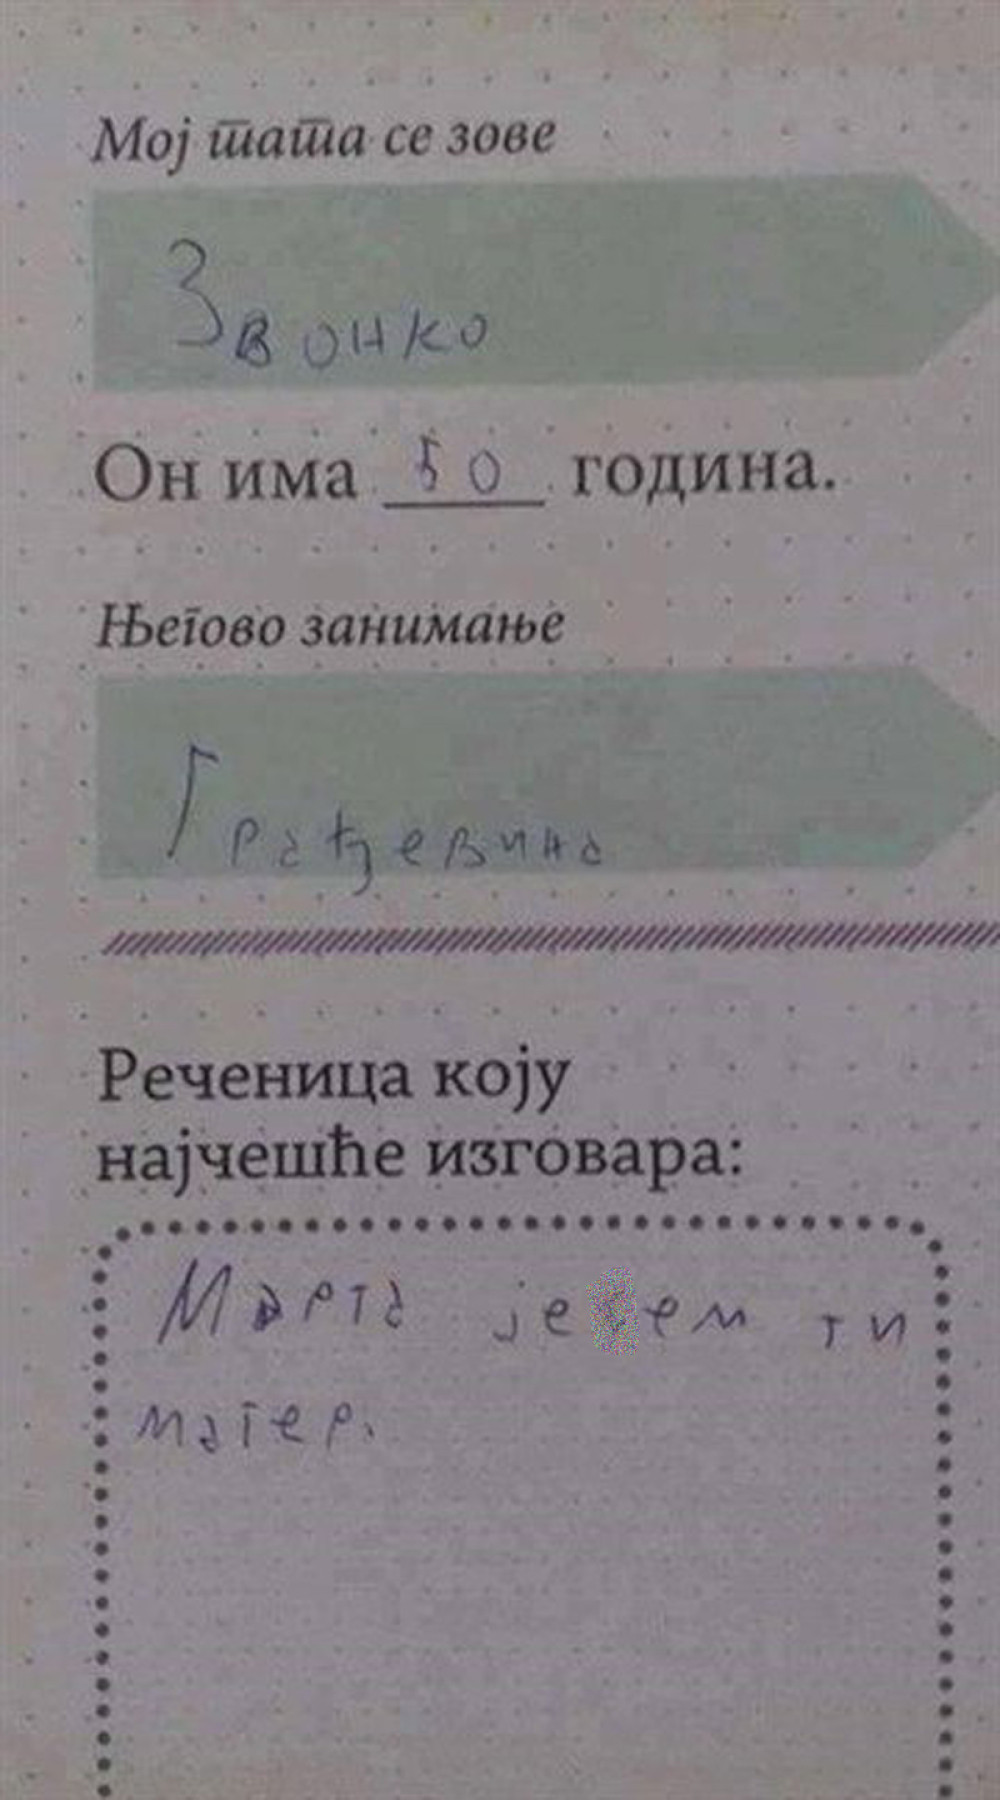 Мој тата се зове
Звонко
Он има 50 година.
Његово занимање
Грађевина
Реченица коју
најчешће изговара:
Марта ти
матер.